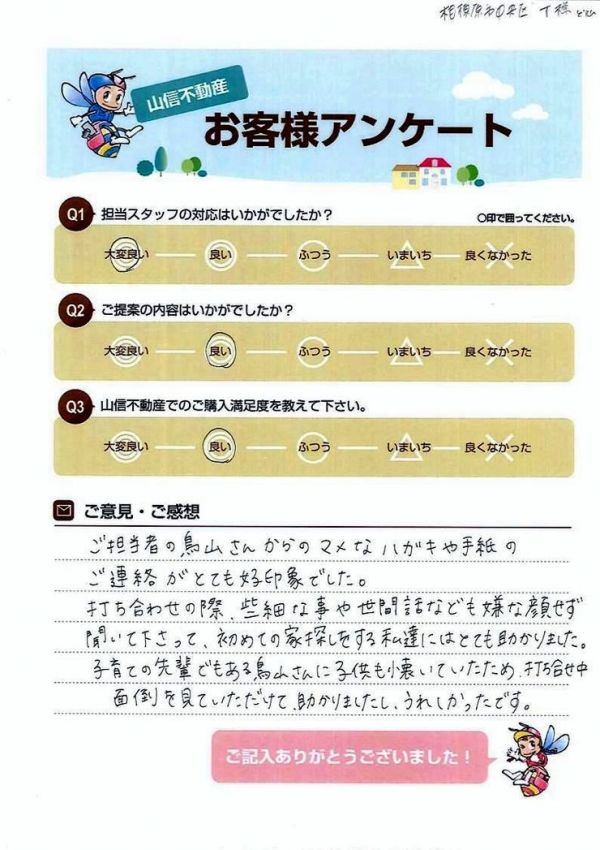 相模原市中央区 T様
山信不動産
お客様アンケート
Q1 担当スタッフの対応はいかがでしたか？ ○印で囲ってください。
大変良い 良い ふつう いまいち 良くなかった
Q2 ご提案の内容はいかがでしたか？
大変良い 良い ふつう いまいち 良くなかった
Q3 山信不動産でのご購入満足度を教えて下さい。
大変良い 良い ふつう いまいち 良くなかった
ご意見・ご感想
ご担当者の鳥山さんからのマメなハガキや手紙の
ご連絡がとても好印象でした。
打ち合わせの際、些細な事や世間話なども嫌な顔せず
聞いて下さって、初めての家探しをする私達にはとても助かりました。
子育ての先輩でもある鳥山さんに子供も懐いていたため、打ち合せ中
面倒を見ていただけて、助かりましたし、うれしかったです。
ご記入ありがとうございました！